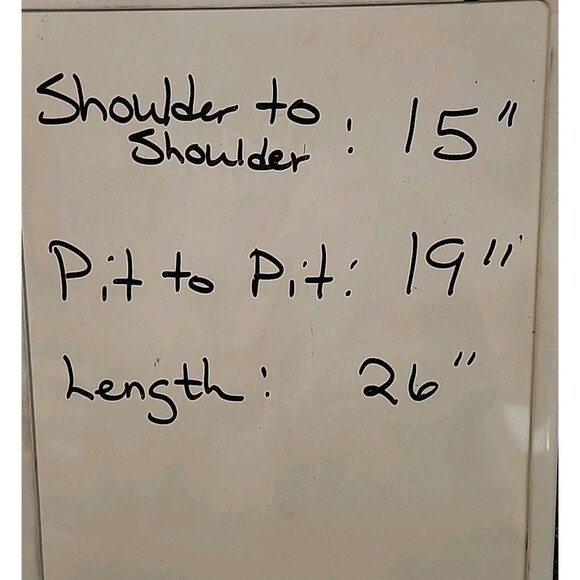 Shoulder to
Shoulder : 15"
Pit to Pit: 19"
Length: 26"